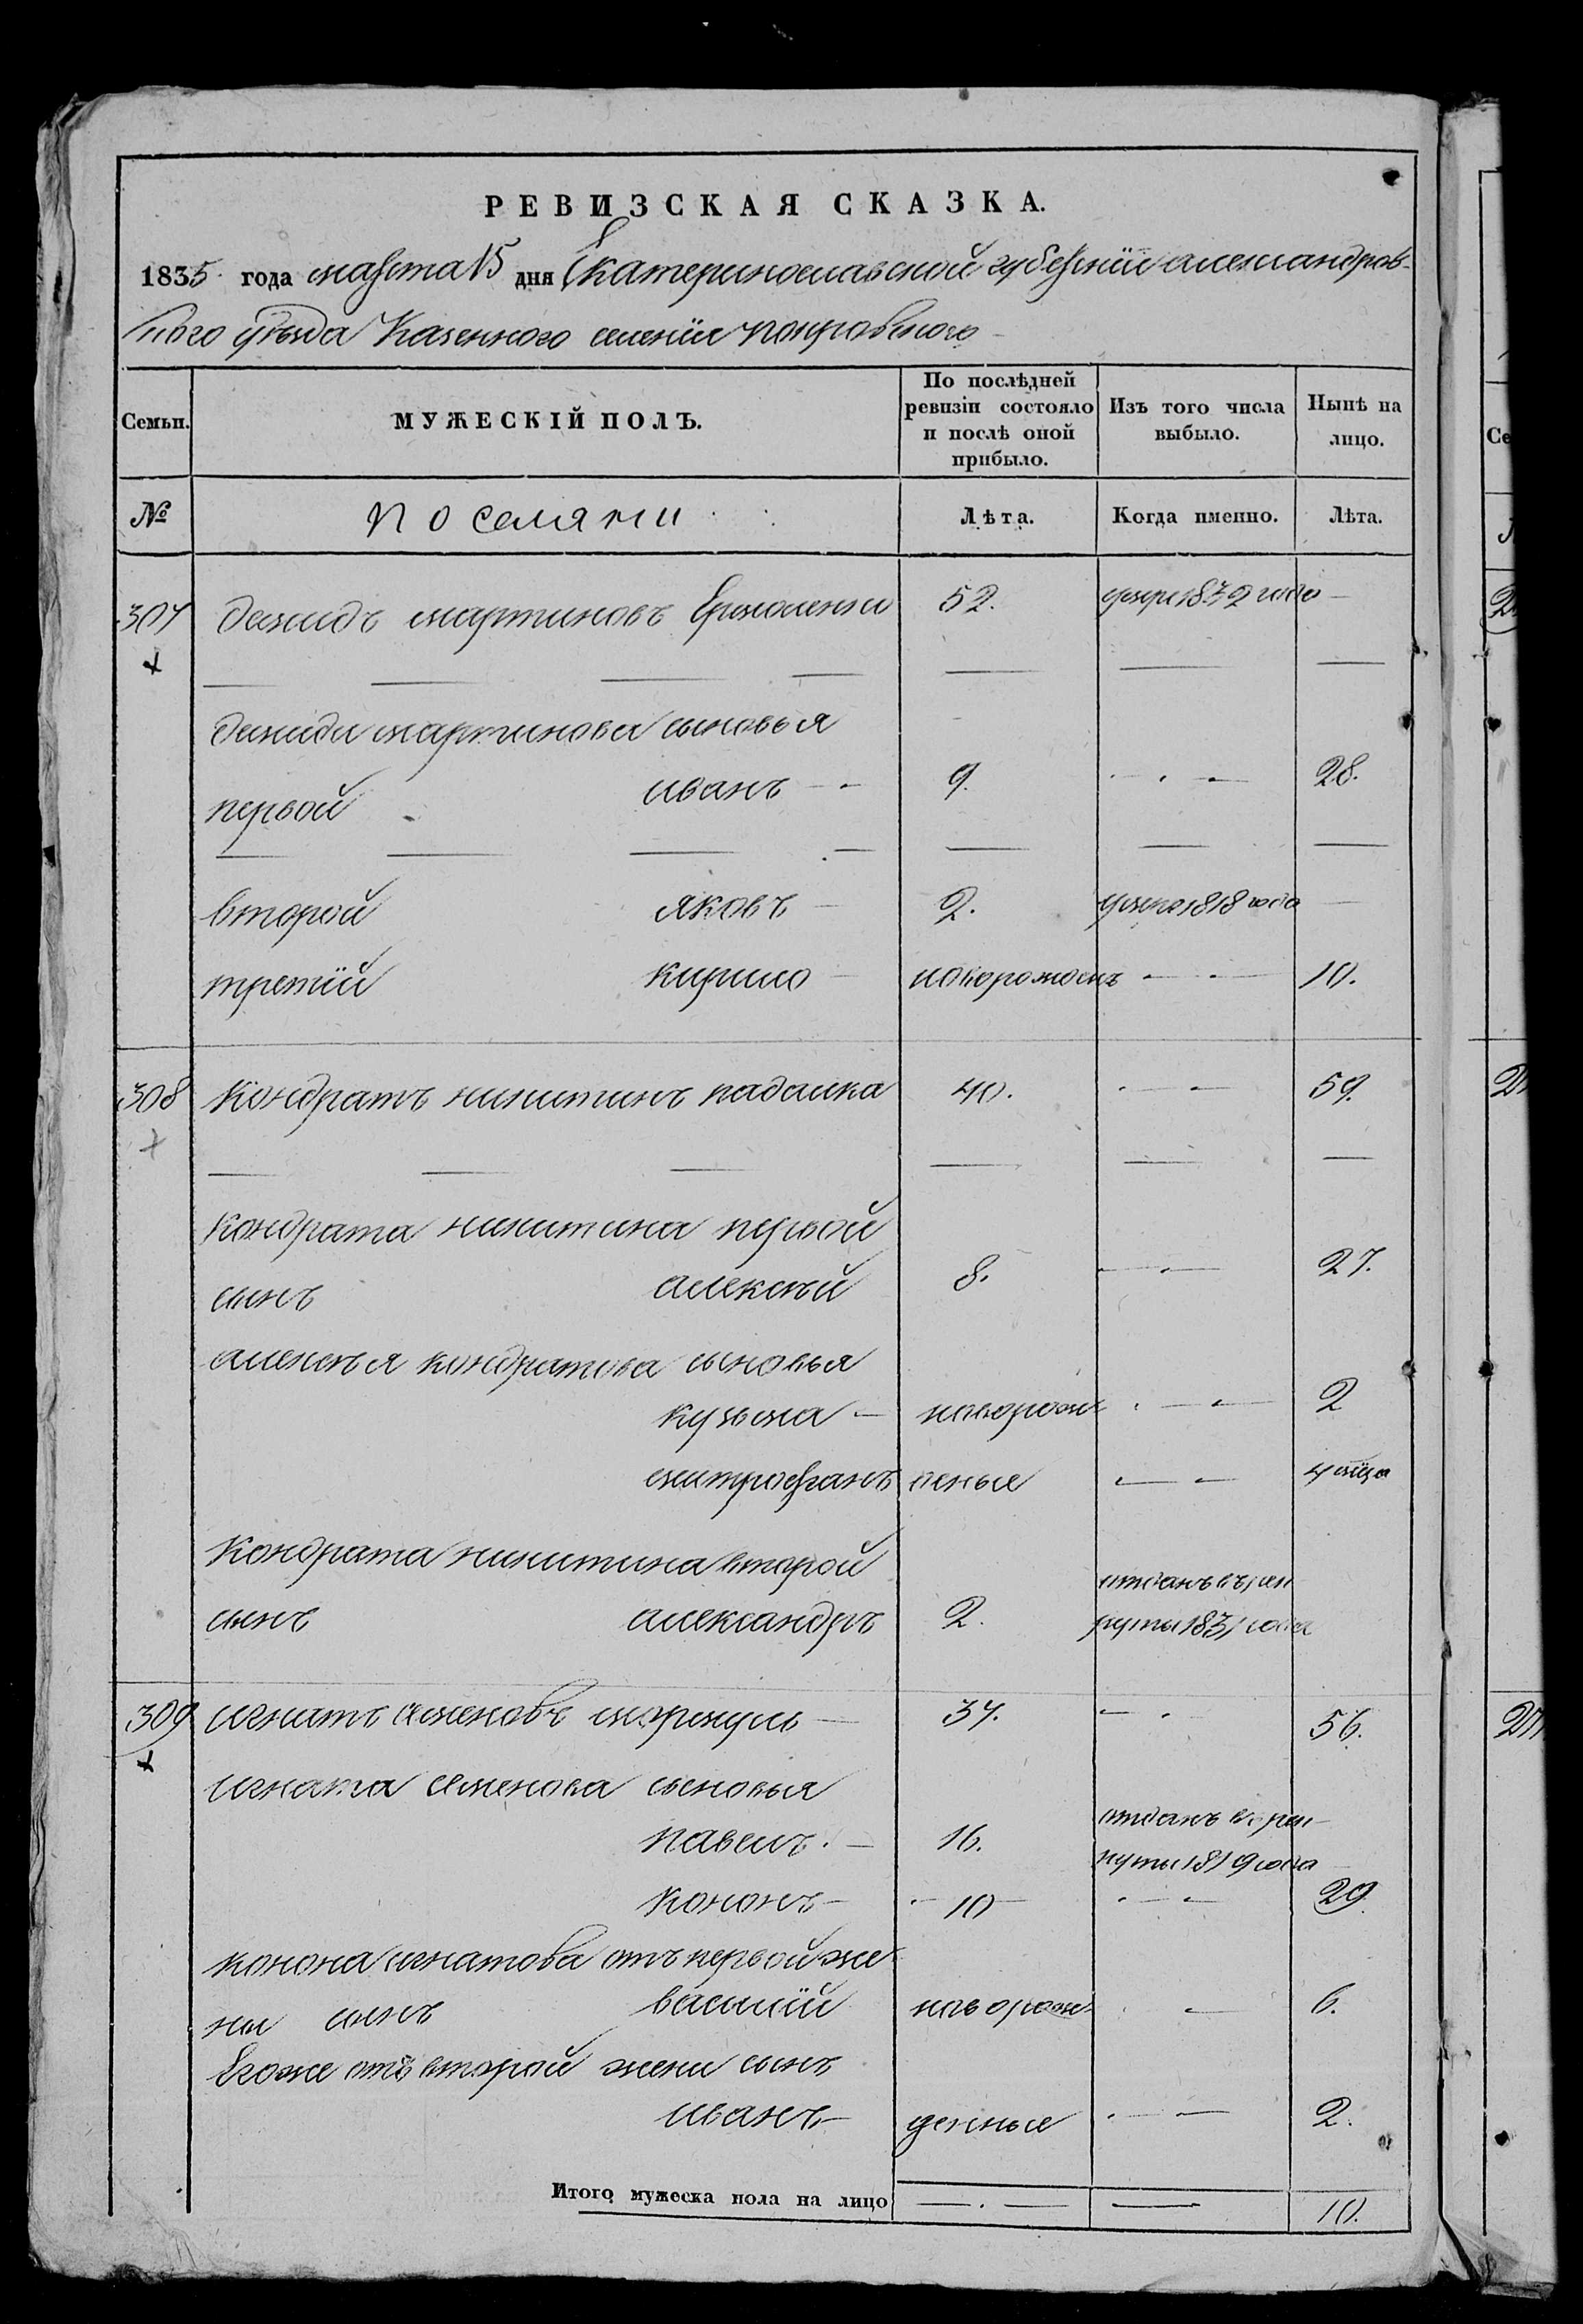 РЕВИЗСКАЯ СКАЗКА.
1835 года марта 15 дня Екатеринославской губернїи александров-
скаго уѣзда Казенного селенїи покровского
Семьи. МУЖЕСКІЙ ПОЛЪ. По послѣдней ревизіи состояло и послѣ оной прибыло. Изъ того числа выбыло. Нынѣ на лицо.
№ поселяни Лѣта. Когда именно. Лѣта.
307 демидъ мартиновъ Ермоленко 52. умре 1832 года
демида мартинова сыновья
первой иванъ 9. 28.
второй яковъ 2. умеръ 1818 года
третїй кирило новорожденъ 10.
308 кондратъ никитинъ падалка 40. 59.
кондрата никитина первой
сынъ алексѣй 8. 27.
алексѣя кондратова сыновья
кузьма новорож 2
митрофанъ деные 4 мца
кондрата никитина второй
сынъ александръ 2. отданъ въ рекруты 1831 года
309 игнатъ семеновъ 37. 56.
игната семенова сыновья
павелъ 16. отданъ в рекруты 1819 года
кононъ 10 29.
конона игнатова отъ первой же-
ны сынъ василїй новорож 6.
Егоже отъ второй жени сынъ
иванъ денные 2.
Итого мужеска пола на лицо 10.